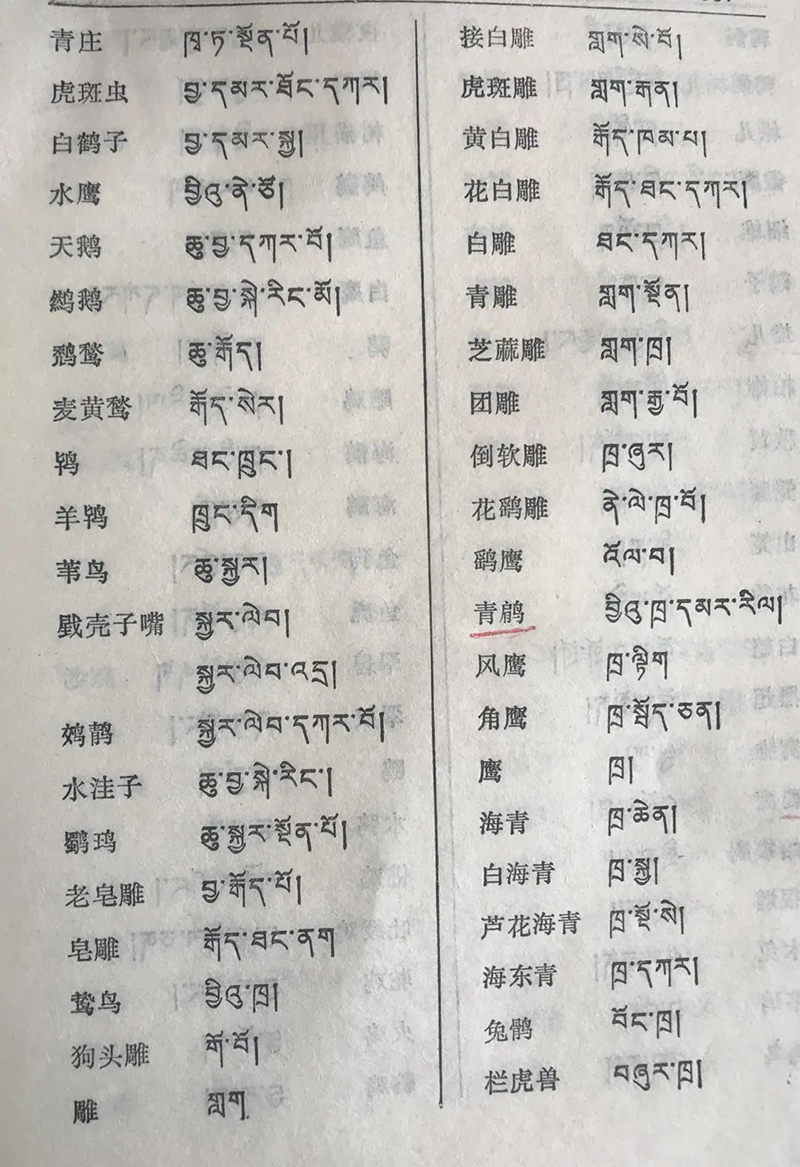 青庄 ཁྭ་ཏ་སྔོན་པོ།
虎斑虫 བྱ་དམར་ཐོང་དཀར།
白鹤子 བྱ་དམར་སྐྱ།
水鹰 བྱིའུ་ནེ་ཙོ།
天鹅 ཆུ་བྱ་དཀར་པོ།
鹚鹅 ཆུ་བྱ་སྐེ་རིང་མོ།
鹔鹙 ཆུ་རྒོད།
麦黄鹙 རྒོད་སེར།
鸨 ཐང་ཁྲུང་།
羊鸨 ཁྲུང་དིག
苇鸟 ཆུ་སྐྱར།
戥壳子嘴 སྐྱར་ལེབ།
སྐྱར་ལེབ་འདྲ།
鹩鹊 སྐྱར་ལེབ་དཀར་པོ།
水洼子 ཆུ་བྱ་སྐེ་རིང་།
鸀鳿 ཆུ་སྐྱར་སྔོན་པོ།
老皂雕 བྱ་རྒོད་པོ།
皂雕 རྒོད་ཐང་ནག
鸷鸟 བྱིའུ་ཁྲ།
狗头雕 གོ་བོ།
雕 གླག
接白雕 གླག་སེ་བོ།
虎斑雕 གླག་རྒན།
黄白雕 རྒོད་ཁམ་པ།
花白雕 རྒོད་ཐང་དཀར།
白雕 ཐང་དཀར།
青雕 གླག་སྔོན།
芝蔴雕 གླག་ཁྲ།
团雕 གླག་རྒྱ་བོ།
倒软雕 ཁྲ་ཞུར།
花鹞雕 ནེ་ལེ་ཁྲ་བོ།
鹞鹰 འོལ་བ།
青鹇 བྱིའུ་ཁྲ་དམར་རིལ།
风鹰 ཁྲ་ལྟིག
角鹰 ཁྲ་སྤོད་ཅན།
鹰 ཁྲ།
海青 ཁྲ་ཆེན།
白海青 ཁྲ་སྐྱ།
芦花海青 ཁྲ་སྔོ་སེ།
海东青 ཁྲ་དཀར།
兔鹘 བོང་ཁྲ།
栏虎兽 བཞུར་ཁྲ།